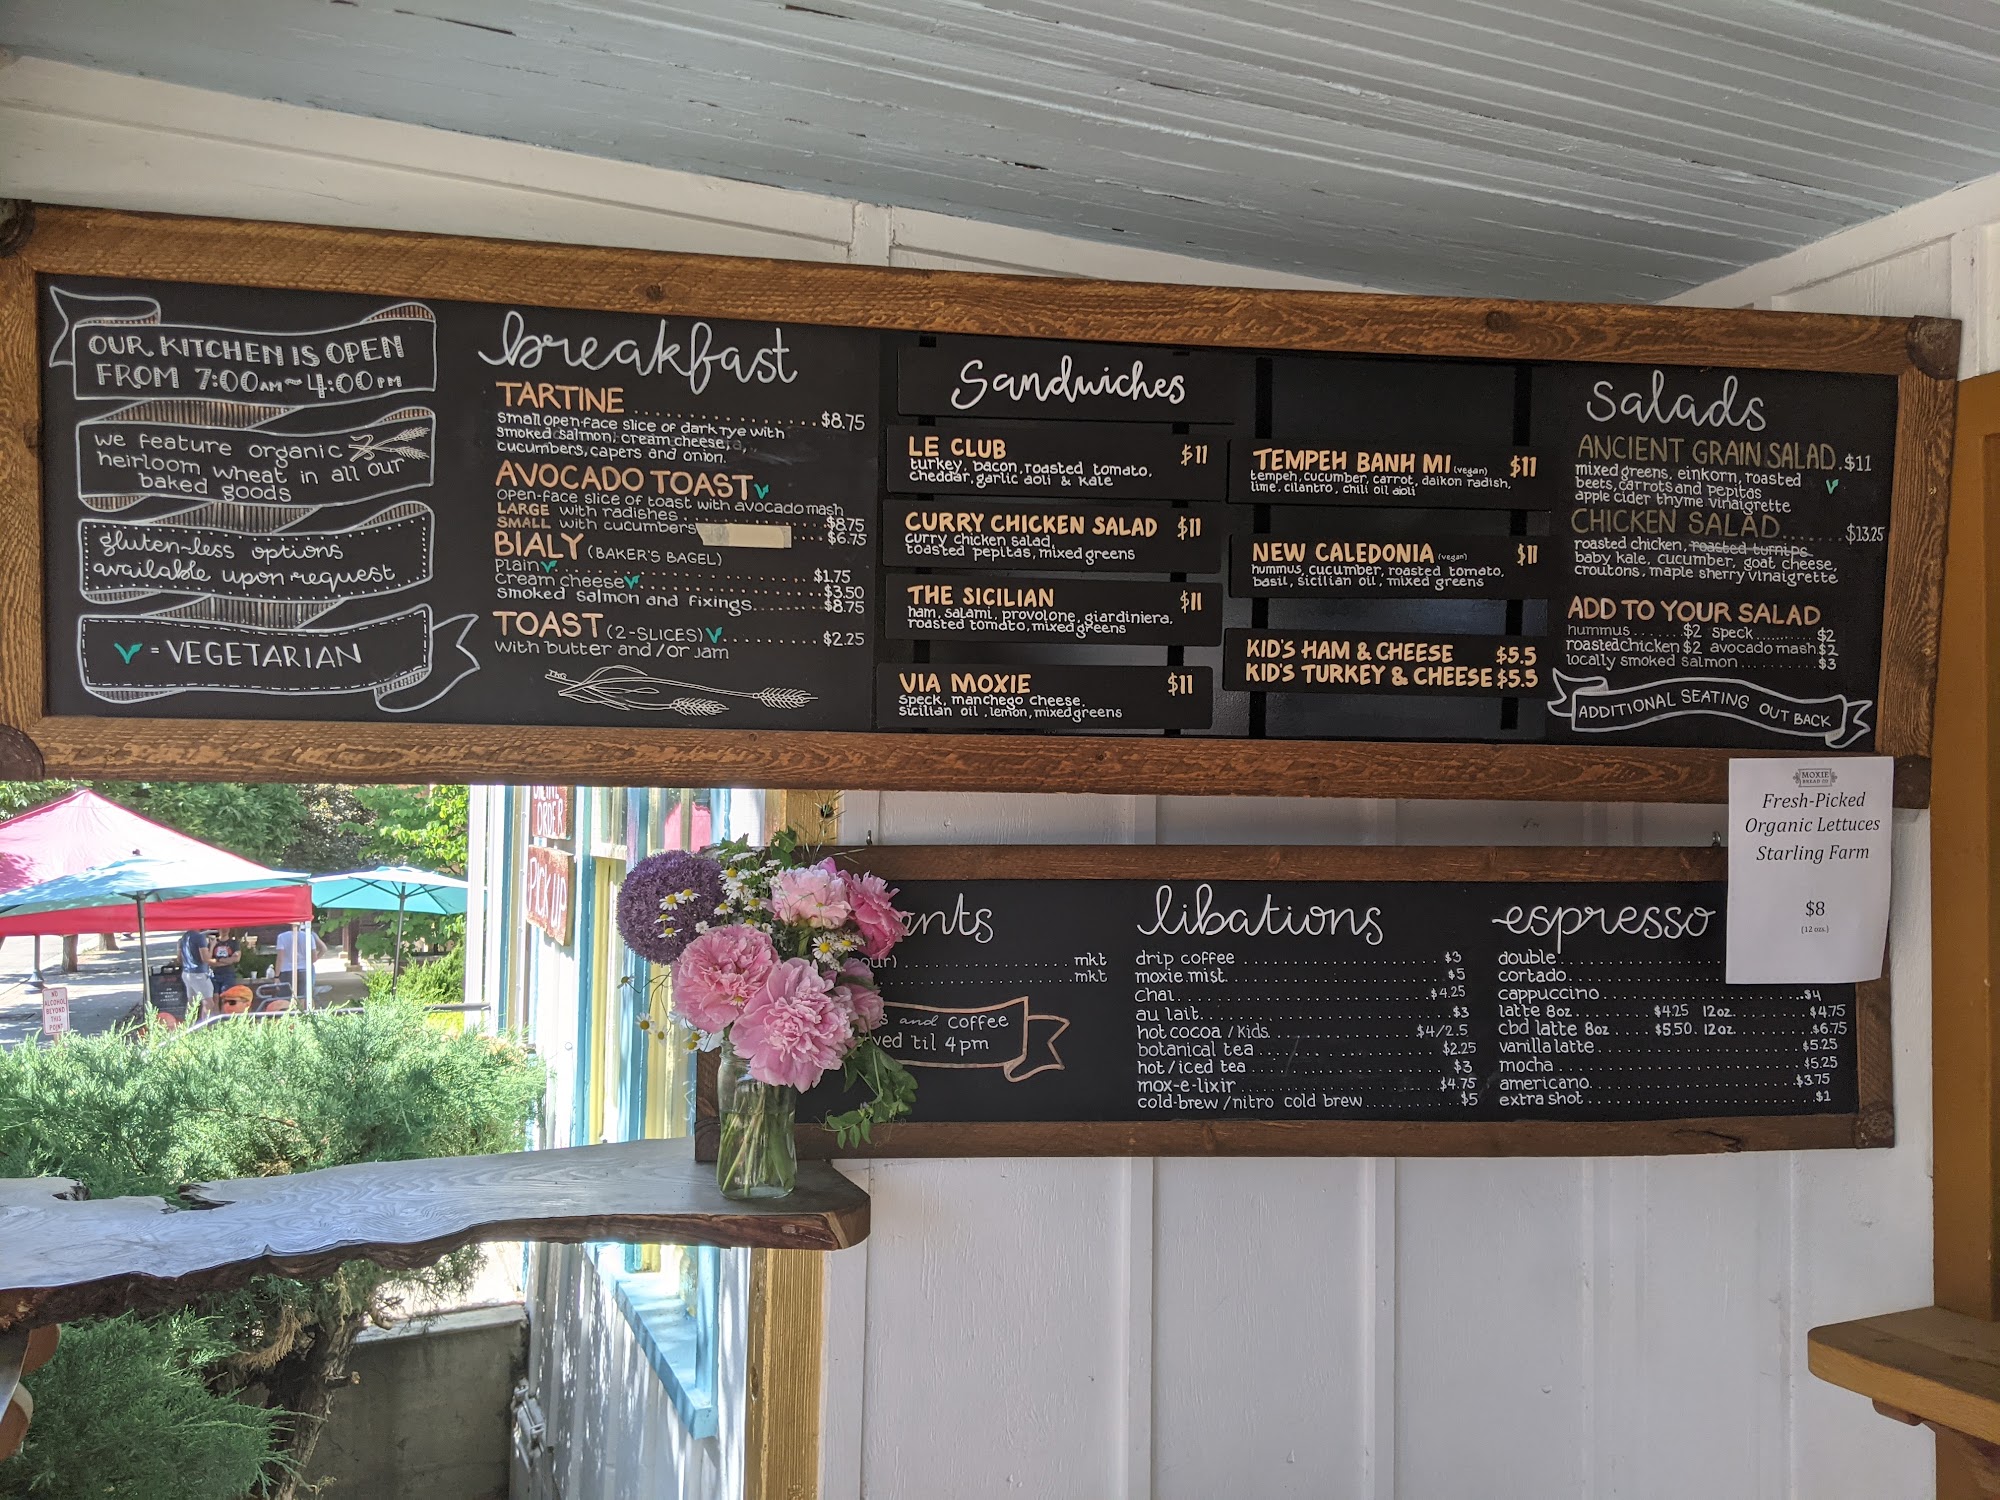 OUR KITCHEN IS OPEN
FROM 7:00AM~4:00PM
we feature organic
heirloom wheat in all our
baked goods
gluten-less options
available upon request
V = VEGETARIAN
breakfast
TARTINE ........ $8.75
small open-face slice of dark rye with
smoked salmon, cream cheese,
cucumbers, capers and onion.
AVOCADO TOAST V
open-face slice of toast with avocado mash
LARGE with radishes ........ $8.75
SMALL with cucumbers ... $6.75
BIALY (BAKER'S BAGEL)
Plain V ........ $1.75
cream cheese V ........ $3.50
smoked salmon and fixings ...... $8.75
TOAST (2-SLICES) V ........ $2.25
with butter and/or jam
Sandwiches
LE CLUB $11
turkey, bacon, roasted tomato,
cheddar, garlic aoli & kale
CURRY CHICKEN SALAD $11
curry chicken salad,
toasted pepitas, mixed greens
THE SICILIAN $11
ham, salami, provolone, giardiniera,
roasted tomato, mixed greens
VIA MOXIE $11
speck, manchego cheese,
sicilian oil, lemon, mixed greens
TEMPEH BANH MI (vegan) $11
tempeh, cucumber, carrot, daikon radish,
lime, cilantro, chili oil aoli
NEW CALEDONIA (vegan) $11
hummus, cucumber, roasted tomato,
basil, sicilian oil, mixed greens
KID'S HAM & CHEESE $5.5
KID'S TURKEY & CHEESE $5.5
Salads
ANCIENT GRAIN SALAD . $11
mixed greens, einkorn, roasted
beets, carrots and pepitas V
apple cider thyme vinaigrette
CHICKEN SALAD ....... $13.25
roasted chicken, roasted turnips
baby kale, cucumber, goat cheese,
croutons, maple sherry vinaigrette
ADD TO YOUR SALAD
hummus ...... $2 speck ......... $2
roasted chicken $2 avocado mash $2
locally smoked salmon .......... $3
ADDITIONAL SEATING OUT BACK
MOXIE
BREAD CO
Fresh-Picked
Organic Lettuces
Starling Farm
$8
(12 ozs.)
ONLINE
ORDER
PICK UP
NO
ALCOHOL
BEYOND
THIS
POINT
ants
our) ........ mkt
........ mkt
s and coffee
ved til 4pm
libations
drip coffee ........ $3
moxie mist ........ $5
chai ........ $4.25
au lait ........ $3
hot cocoa / kids ........ $4/2.5
botanical tea ........ $2.25
hot/iced tea ........ $3
mox-e-lixir ........ $4.75
cold-brew/nitro cold brew ........ $5
espresso
double ........
cortado ........
cappuccino ........ $4
latte 8oz ........ $4.25 12oz ........ $4.75
cbd latte 8oz ... $5.50. 12oz ........ $6.75
vanilla latte ........ $5.25
mocha ........ $5.25
americano ........ $3.75
extra shot ........ $1